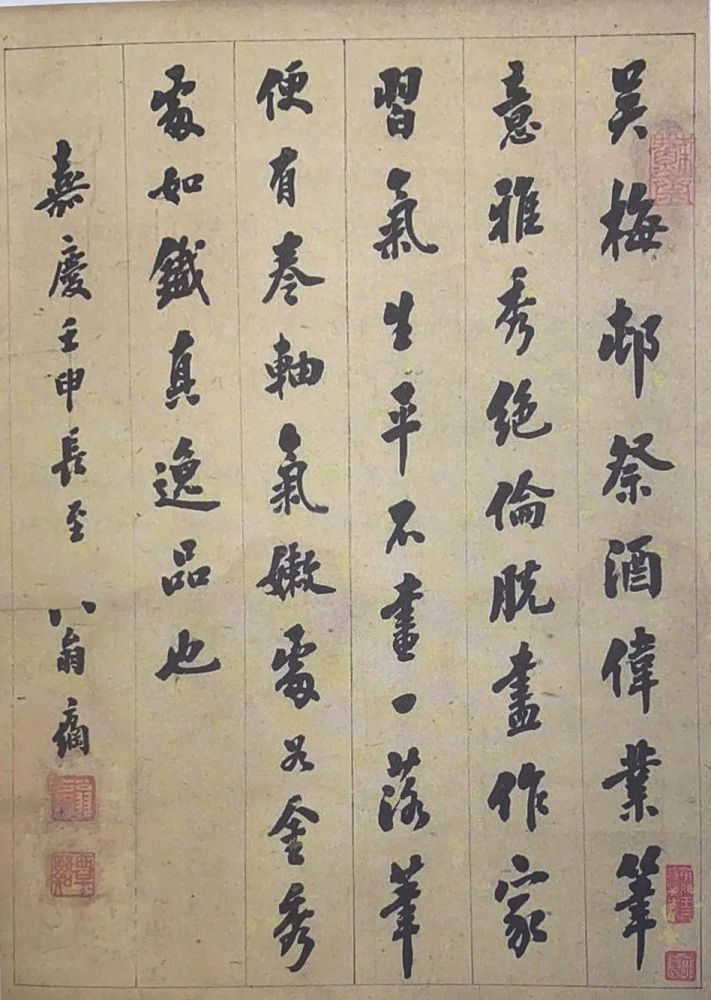 吳梅邨祭酒偉業筆
意雅秀絶倫脫盡作家
習氣生平不畫一落筆
便有卷軸氣嫩處如金秀
處如鐵真逸品也
嘉慶壬申長至 翁方綱